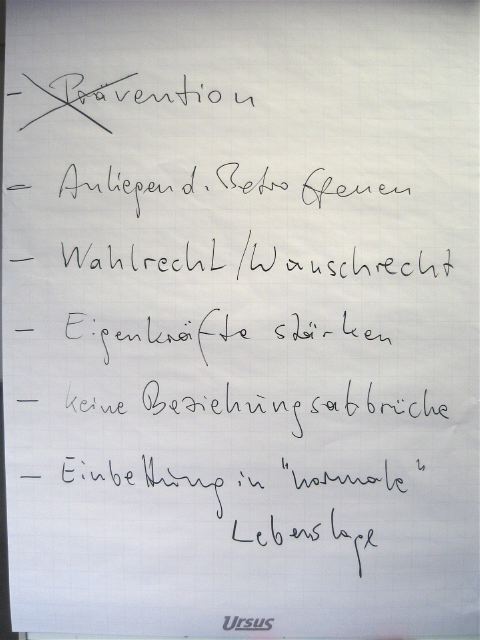 - Prävention
- Anliegen d. Betroffenen
- Wahlrecht/Wunschrecht
- Eigenkräfte stärken
- keine Beziehungsabbrüche
- Einbettung in "normale"
Lebenslage
Ursus